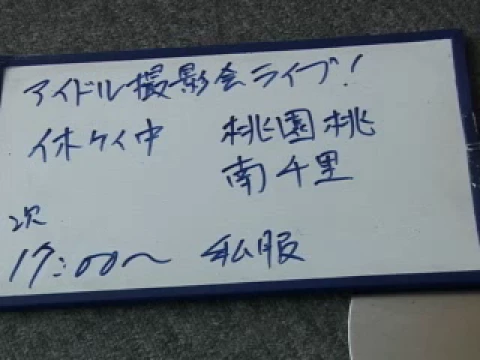 アイドル撮影会ライブ!
休ケイ中 桃園桃
南千里
次
17:00~ 私服